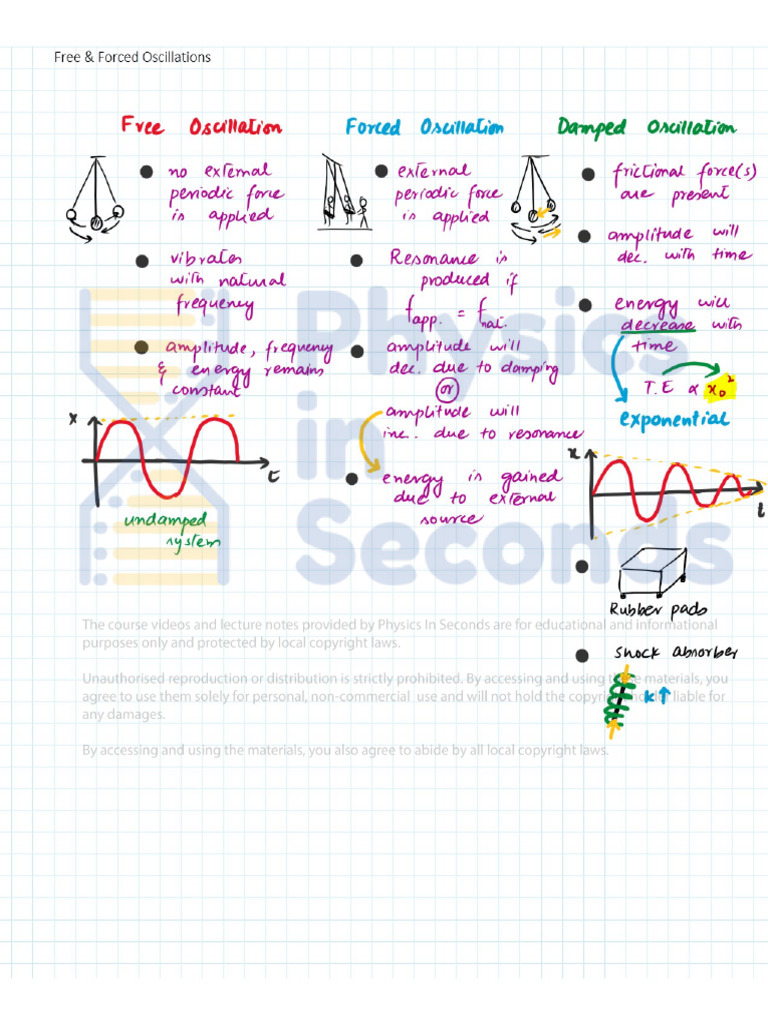 Free & Forced Oscillations
Free Oscillation
no external
periodic force
is applied
vibrates
with natural
frequency
amplitude, frequency
& energy remains
constant
x
t
undamped
system
Forced Oscillation
external
periodic force
is applied
Resonance is
produced if
f app. = f nat.
amplitude will
dec. due to damping
(or)
amplitude will
inc. due to resonance
energy is gained
due to external
source
Damped Oscillation
frictional force(s)
are present
amplitude will
dec. with time
energy will
decrease with
time
T.E α x₀²
exponential
x
t
Rubber pads
shock absorber
k↑
Physics
in
Seconds
The course videos and lecture notes provided by Physics In Seconds are for educational and informational
purposes only and protected by local copyright laws.
Unauthorised reproduction or distribution is strictly prohibited. By accessing and using these materials, you
agree to use them solely for personal, non-commercial use and will not hold the copyright holder liable for
any damages.
By accessing and using the materials, you also agree to abide by all local copyright laws.